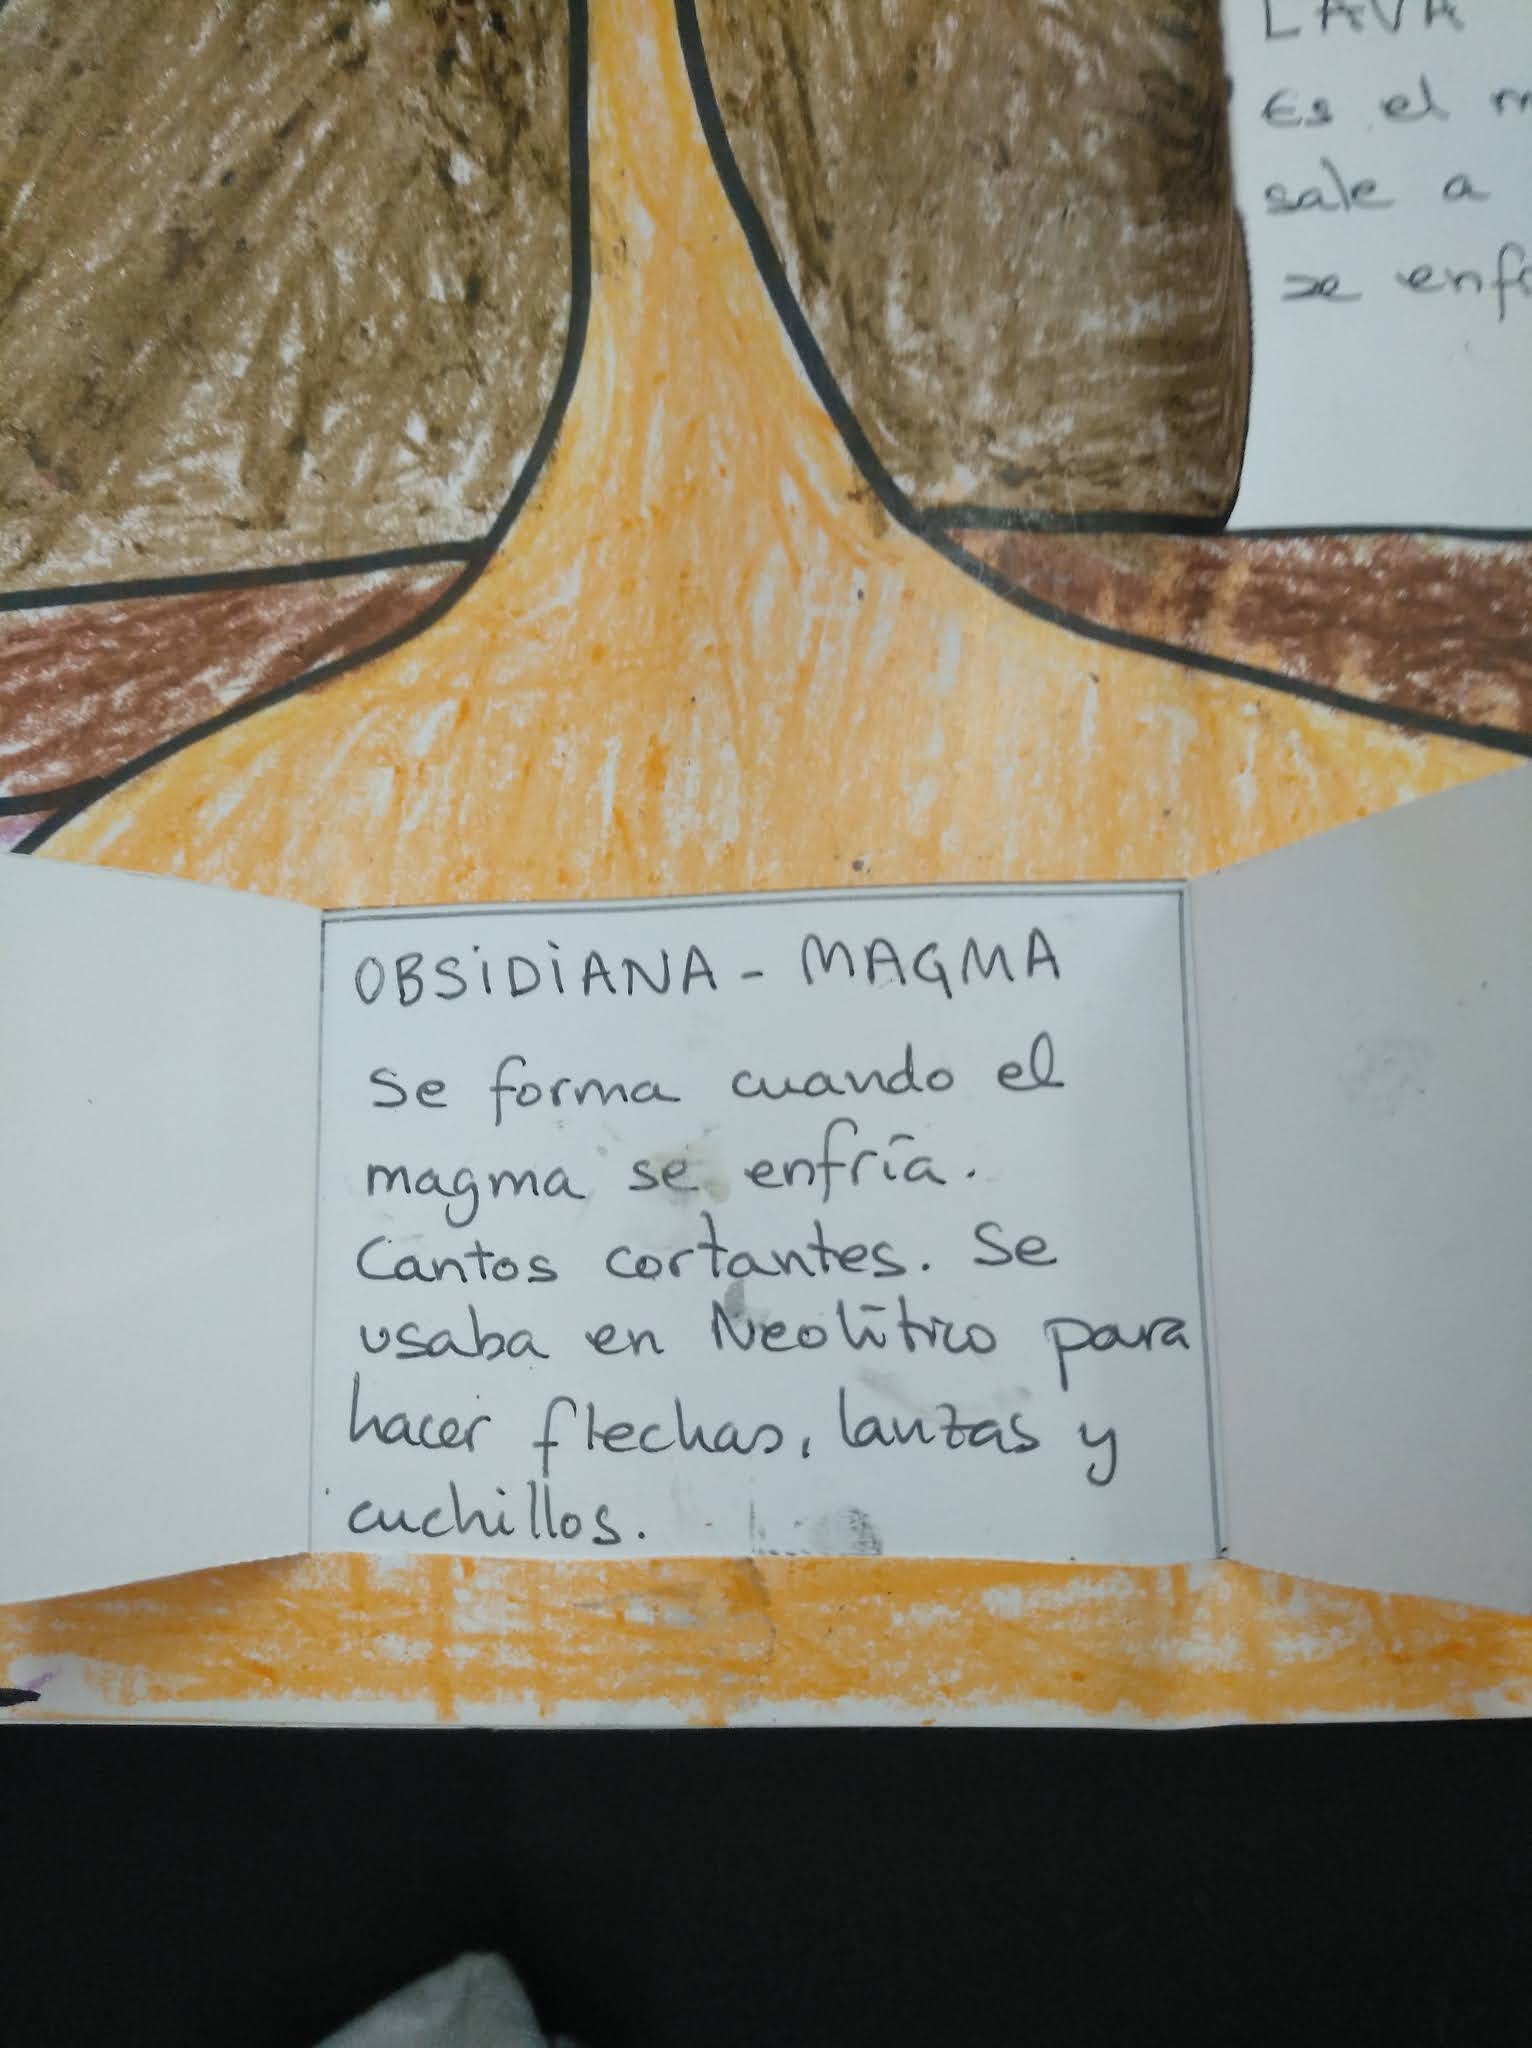 LAVA
Es el
sale a
se
OBSiDiANA - MAGMA
Se forma cuando el
magma se enfría.
Cantos cortantes. Se
usaba en Neolítico para
hacer flechas, lanzas y
cuchillos.